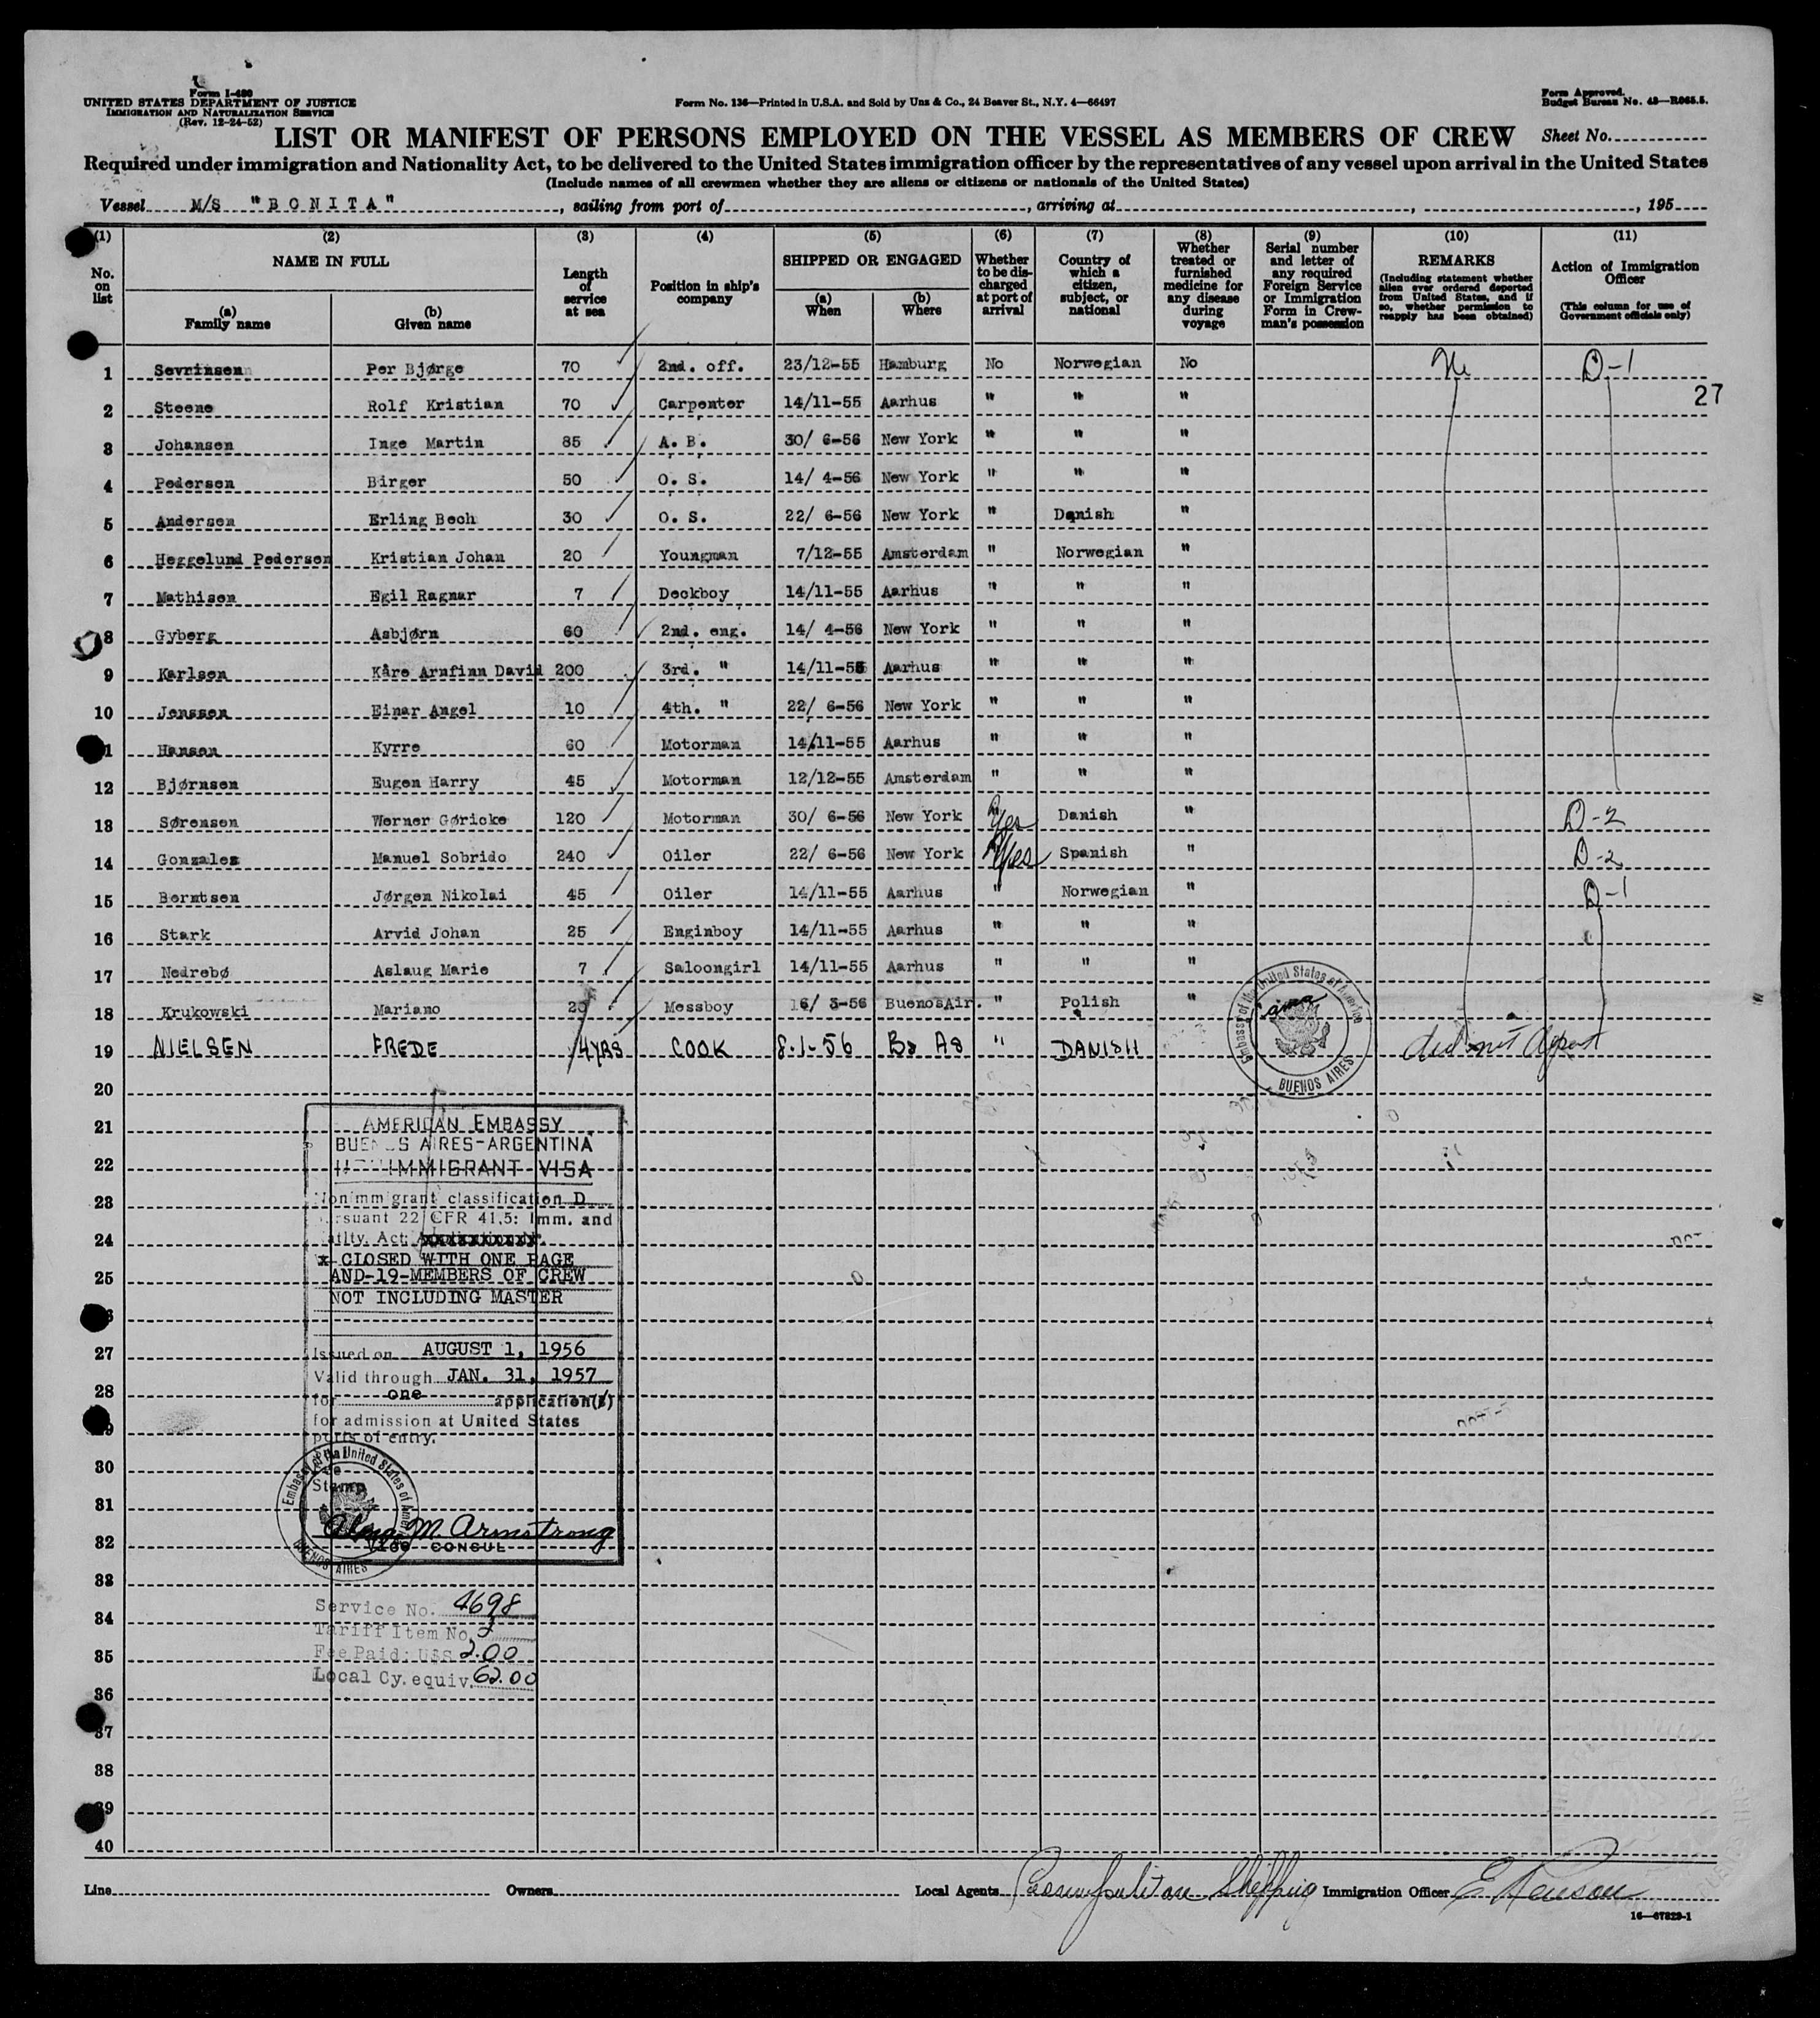 Form I-480
UNITED STATES DEPARTMENT OF JUSTICE
IMMIGRATION AND NATURALIZATION SERVICE
(Rev. 12-24-52)
Form No. 136—Printed in U.S.A. and Sold by Unz & Co., 24 Beaver St., N.Y. 4—66497
Form Approved.
Budget Bureau No. 43—R065.5.
LIST OR MANIFEST OF PERSONS EMPLOYED ON THE VESSEL AS MEMBERS OF CREW Sheet No.
Required under immigration and Nationality Act, to be delivered to the United States immigration officer by the representatives of any vessel upon arrival in the United States
(Include names of all crewmen whether they are aliens or citizens or nationals of the United States)
Vessel M/S "BONITA", sailing from port of , arriving at , , 195
(1) (2) (3) (4) (5) (6) (7) (8) (9) (10) (11)
No. on list
NAME IN FULL
(a) Family name
(b) Given name
Length of service at sea
Position in ship's company
SHIPPED OR ENGAGED
(a) When
(b) Where
Whether to be discharged at port of arrival
Country of which a citizen, subject, or national
Whether treated or furnished medicine for any disease during voyage
Serial number and letter of any required Foreign Service or Immigration Form in Crewman's possession
REMARKS
(Including statement whether alien ever ordered deported from United States, and if so, whether permission to reapply has been obtained)
Action of Immigration Officer
(This column for use of Government officials only)
1 Sevrinsen Per Bjørge 70 2nd. off. 23/12-55 Hamburg No Norwegian No D-1
27
2 Steene Rolf Kristian 70 Carpenter 14/11-55 Aarhus " " "
3 Johansen Inge Martin 85 A. B. 30/ 6-56 New York " " "
4 Pedersen Birger 50 O. S. 14/ 4-56 New York " " "
5 Andersen Erling Bech 30 O. S. 22/ 6-56 New York " Danish "
6 Heggelund Pedersen Kristian Johan 20 Youngman 7/12-55 Amsterdam " Norwegian "
7 Mathisen Egil Ragnar 7 Deckboy 14/11-55 Aarhus " " "
8 Gyberg Asbjørn 60 2nd. eng. 14/ 4-56 New York " " "
9 Karlsen Kåre Arnfinn David 200 3rd. " 14/11-55 Aarhus " " "
10 Jenssen Einar Angel 10 4th. " 22/ 6-56 New York " " "
11 Hansen Kyrre 60 Motorman 14/11-55 Aarhus " " "
12 Bjørnsen Eugen Harry 45 Motorman 12/12-55 Amsterdam " " "
13 Sørensen Werner Gøricke 120 Motorman 30/ 6-56 New York Yes Danish " D-2
14 Gonzales Manuel Sobrido 240 Oiler 22/ 6-56 New York Yes Spanish " D-2
15 Berntsen Jørgen Nikolai 45 Oiler 14/11-55 Aarhus " Norwegian " D-1
16 Stark Arvid Johan 25 Enginboy 14/11-55 Aarhus " " "
17 Nedrebø Aslaug Marie 7 Saloongirl 14/11-55 Aarhus " " "
18 Krukowski Mariano 20 Messboy 16/ 3-56 BuenosAir. " Polish "
19 NIELSEN FREDE 4YRS COOK 8-1-56 Bs As " DANISH did not depart
Embassy of the United States of America
BUENOS AIRES
20
21
22
23
24
25
26
27
28
29
30
31
32
33
34
35
36
37
38
39
40
AMERICAN EMBASSY
BUENOS AIRES-ARGENTINA
NONIMMIGRANT VISA
Nonimmigrant classification D
pursuant 22 CFR 41.5: Imm. and
Natlty. Act:
x CLOSED WITH ONE PAGE
AND-19-MEMBERS OF CREW
NOT INCLUDING MASTER
Issued on AUGUST 1, 1956
Valid through JAN. 31, 1957
for one application(s)
for admission at United States
ports of entry.
Fee
Stamp
Embassy of the United States of America
BUENOS AIRES
M. Armstrong
VICE CONSUL
Service No. 4698
Tariff Item No. 2
Fee Paid: U$S 2.00
Local Cy. equiv. 62.00
Line Owners Local Agents Cosmopolitan Shipping Immigration Officer
16—67323-1